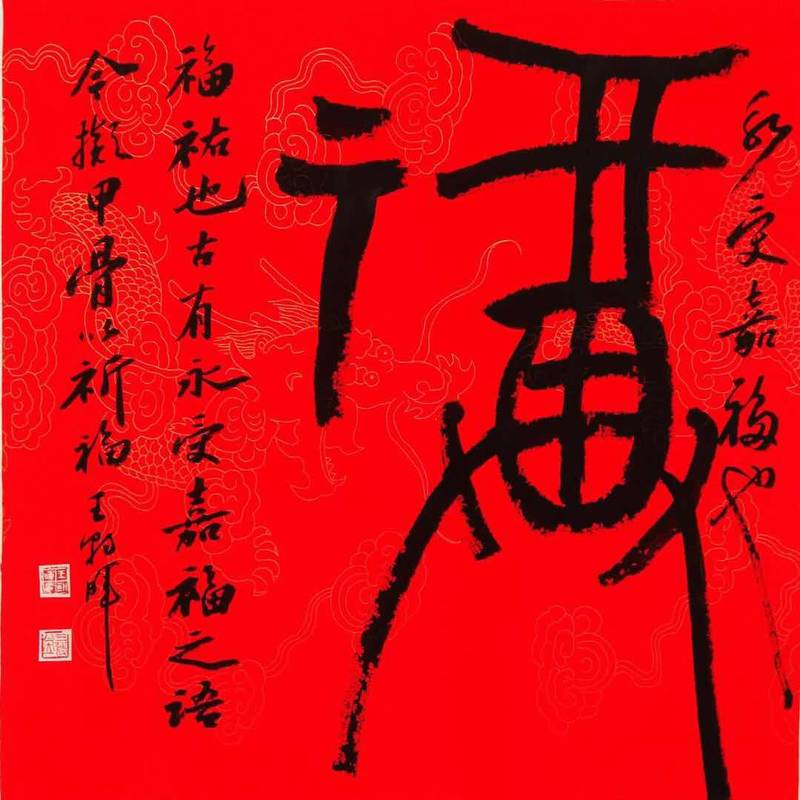 永受嘉福也
福
福祐也古有永受嘉福之语
今擬甲骨以祈福 王